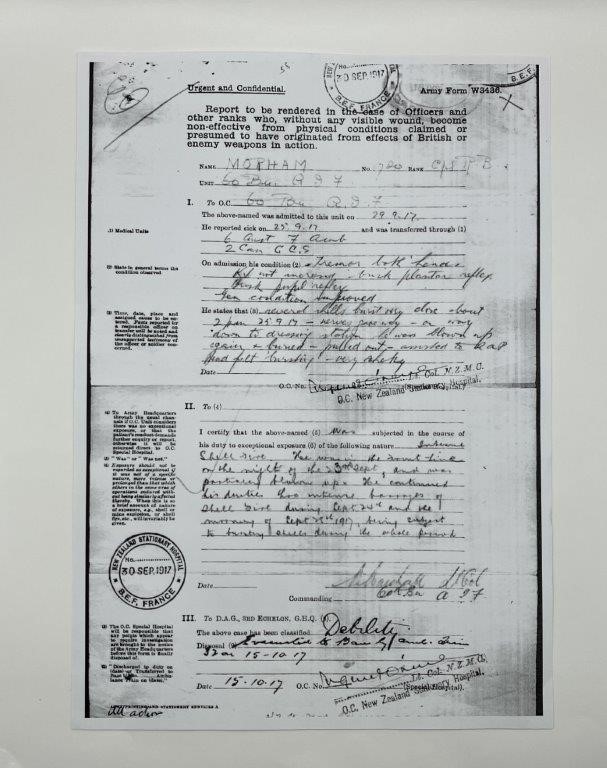 NEW ZEALAND
HOSPITAL
No.
30 SEP. 1917
B.E.F. FRANCE
B.E.F.
Urgent and Confidential.
Army Form W3436.
Report to be rendered in the case of Officers and
other ranks who, without any visible wound, become
non-effective from physical conditions claimed or
presumed to have originated from effects of British or
enemy weapons in action.
NAME MOPHAM No. 720 RANK
UNIT 60 Bn. A I F
I. To O.C. 60 Bn A.I.F.
The above-named was admitted to this unit on 29.9.17
He reported sick on 25.9.17 and was transferred through (1)
6 Aust F Amb
2 Can C C S
(1) Medical Units
On admission his condition (2) Tremor both hands
KJ not increased - brisk plantar reflex
Brisk pupil reflex
Gen condition improved
(2) State in general terms the
condition observed
He states that (3) several shells burst very close about
2 pm 25.9.17 - nerves gave way - on way
down to dressing station he was blown up
again & buried - pulled out - assisted to
Head felt bursting - very shaky
(3) Time, date, place and
assigned cause to be en-
tered. Facts reported by
a responsible officer on
transfer will be noted and
clearly distinguished from
unsupported testimony of
the officer or soldier con-
cerned.
Date
O.C. No. Lt. Col. N.Z.M.C.
O.C. New Zealand Stationary Hospital.
II. To (4)
I certify that the above-named (5) Was subjected in the course of
his duty to exceptional exposure (6) of the following nature Intense
Shell Fire. He was in the Front Line
on the night of the 23rd Sept, and was
partially blown up. He continued
his duties thro intense barrages of
shell fire during Sept 24th and the
morning of Sept 25th 1917, being subject
to bursting shells during the whole period
(4) To Army Headquarters
through the usual chan-
nels if O.C. Unit considers
there was no exceptional
exposure, or that the
patient's conduct demands
further enquiry or report,
otherwise it will be
returned direct to O.C.
Special Hospital.
(5) "Was" or "Was not."
(6) Exposure should not be
regarded as exceptional if
it was not of a specific
nature, more intense or
prolonged than that which
others in the same area of
operations endured with-
out being similarly affected
thereby. When this is so
a brief account of nature
of exposure, e.g., shell or
mine explosion, or shell
fire, etc., will invariably be
given.
NEW ZEALAND STATIONARY HOSPITAL
No.
30 SEP. 1917
B.E.F. FRANCE
Date
Lt Col
Commanding 60th Bn A I F
III. To D.A.G., 3RD ECHELON, G.H.Q.
The above case has been classified Debility
Disposal (8) Evacuated to Base by Amb. Train
15-10-17
(7) The O.C. Special Hospital
will be responsible that
any points which appear
to require investigation
are brought to the notice
of the Army Headquarters
before this form is finally
disposed of.
(8) "Discharged to duty on
(date) or Transferred to
Base by Ambu-
lance Train on (date)."
Date 15-10-17 O.C. No. Lt. Col. N.Z.M.C.
(Special Hospital).
O.C. New Zealand Stationary Hospital.
PRINTING AND STATIONERY SERVICES A